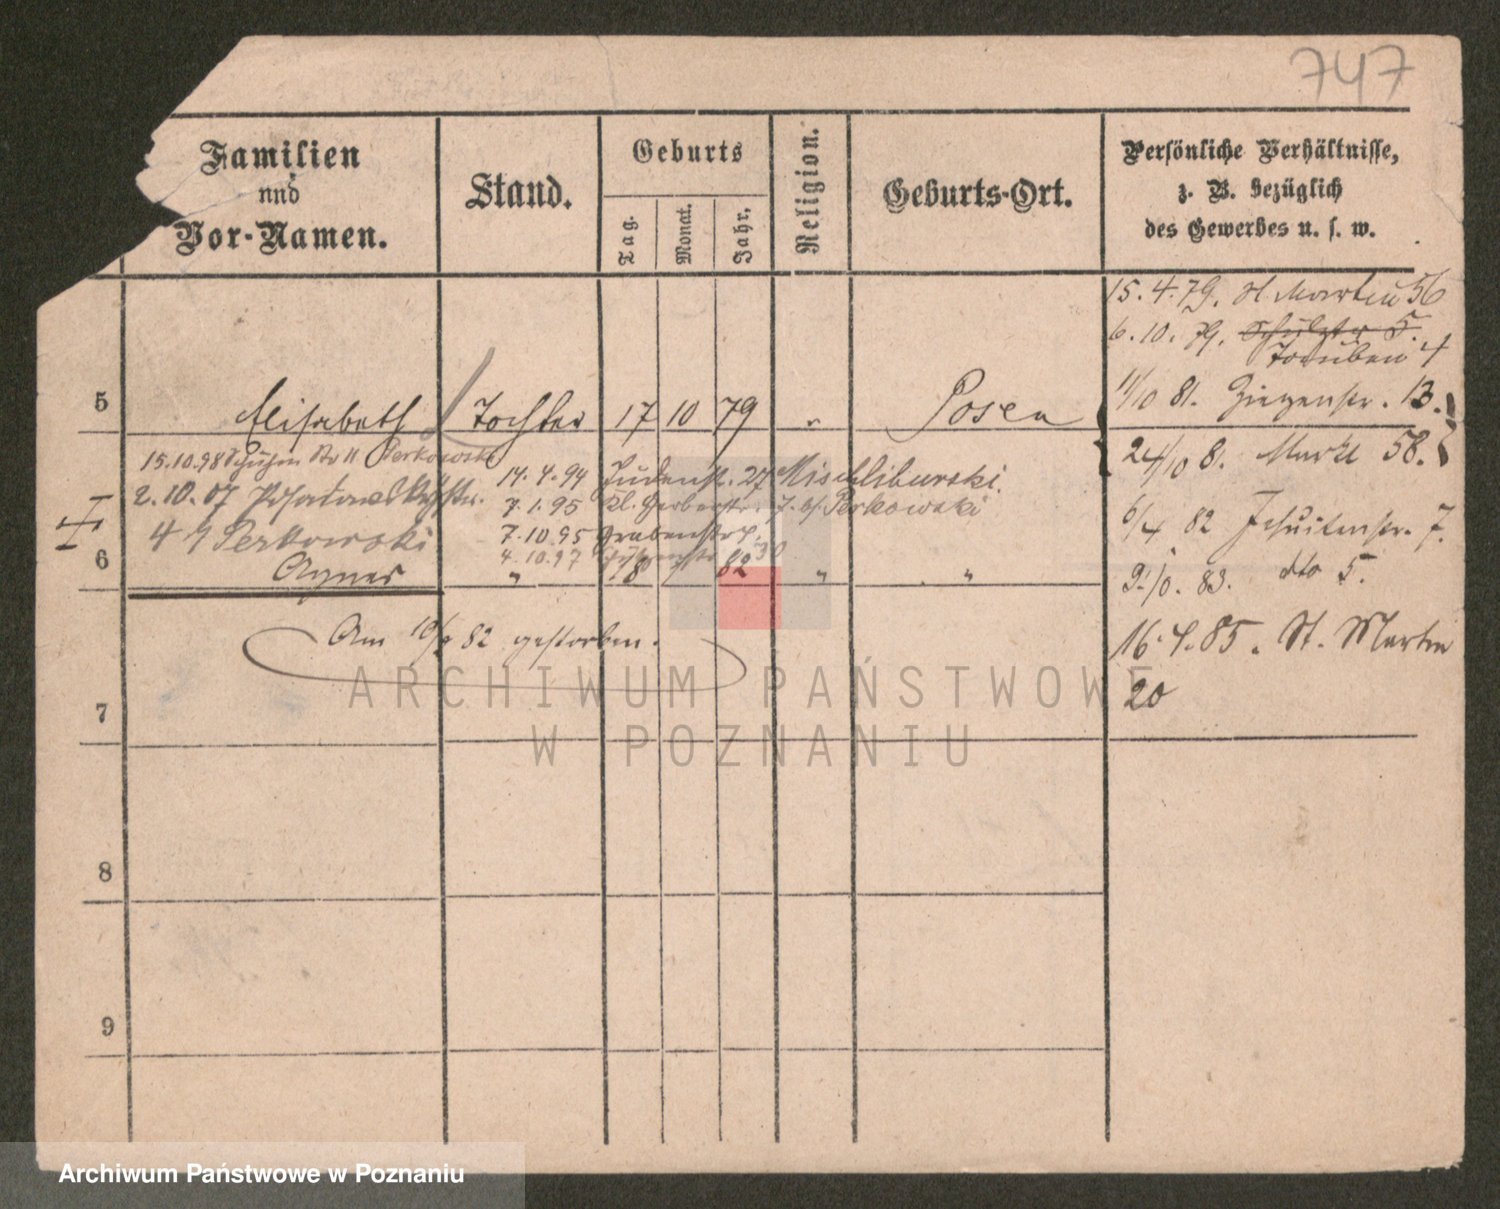 747
Familien
und
Vor-Namen.
Stand.
Geburts
Tag.
Monat.
Jahr.
Religion.
Geburts-Ort.
Persönliche Verhältnisse,
z. B. bezüglich
des Gewerbes u. s. w.
15. 4. 79. St. Martin 56
6. 10. 79. Schulstr 5.
4
5 Elisabeth Tochter 17 10 79 " Posen
11/10 81. Ziegenstr. 13.
24/10 8. Markt 58.
15.10.98 Perkowski
14. 4. 94 Judenst. 27 Mischliburski.
2. 10. 07
7. 1. 95 Kl. Gerberstr. 7. b/ Perkowski
6/4 82 Jesuitenstr. 7.
4 9 Perkowski
7. 10. 95 Grabenstr
4. 10. 97
6 Agnes " 18 82 " "
9./10. 83. dto 5.
Am 10/9 82 gestorben.
16. 4. 85. St. Martin
20
7
8
9
ARCHIWUM PAŃSTWOWE
W POZNANIU
Archiwum Państwowe w Poznaniu